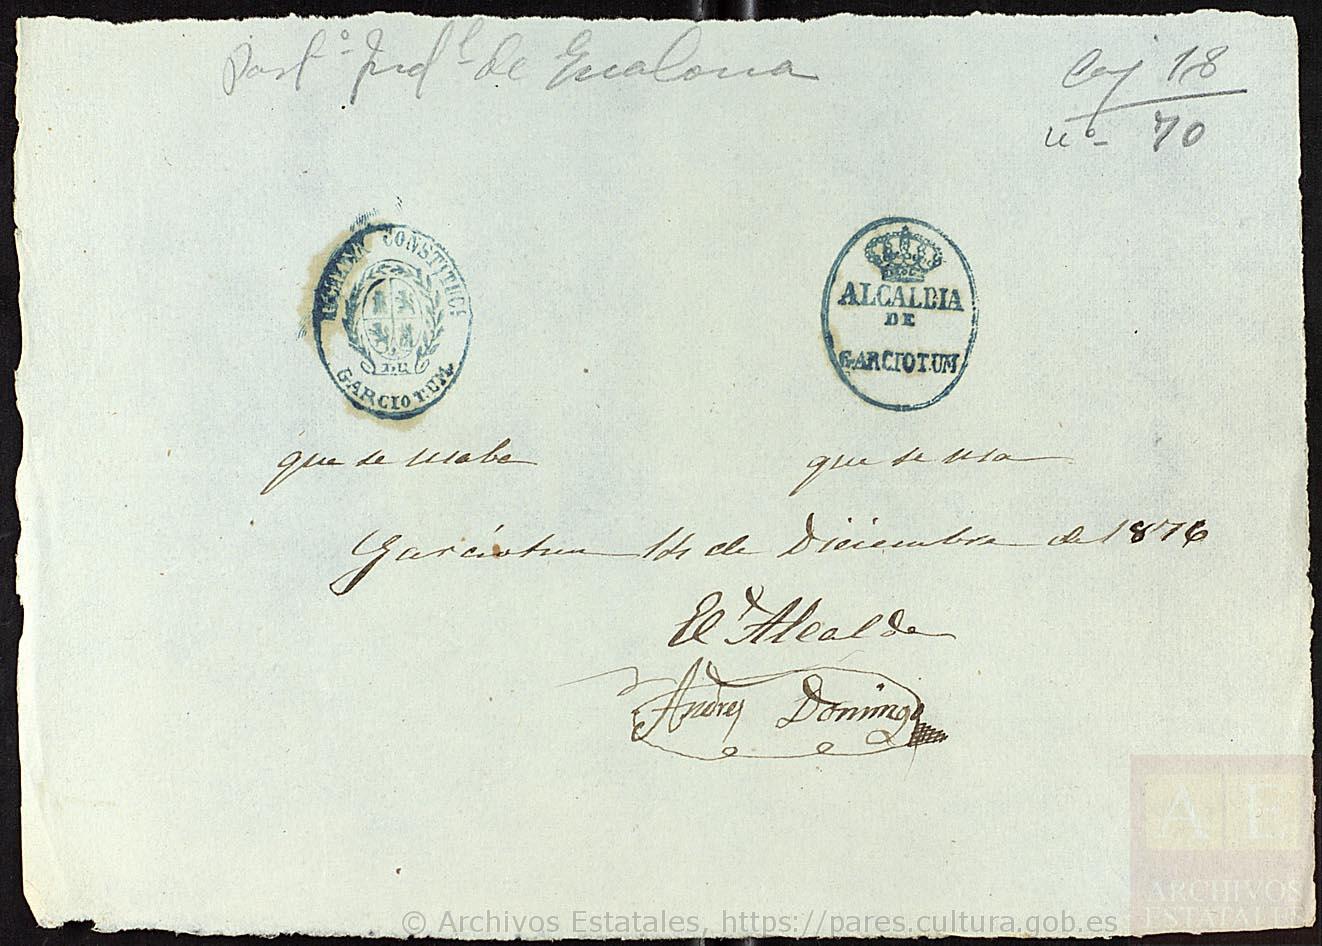 Part.º Jud.l de Escalona
Caj 18
nº 70
ALCALDIA CONSTITUCL
DE
GARCIOTUM
ALCALDIA
DE
GARCIOTUM
que se usaba
que se usa
Garciotum 14 de Diciembre de 1876
El Alcalde
Andres Domingo
AE
ARCHIVOS
ESTATALES
© Archivos Estatales, https://pares.cultura.gob.es